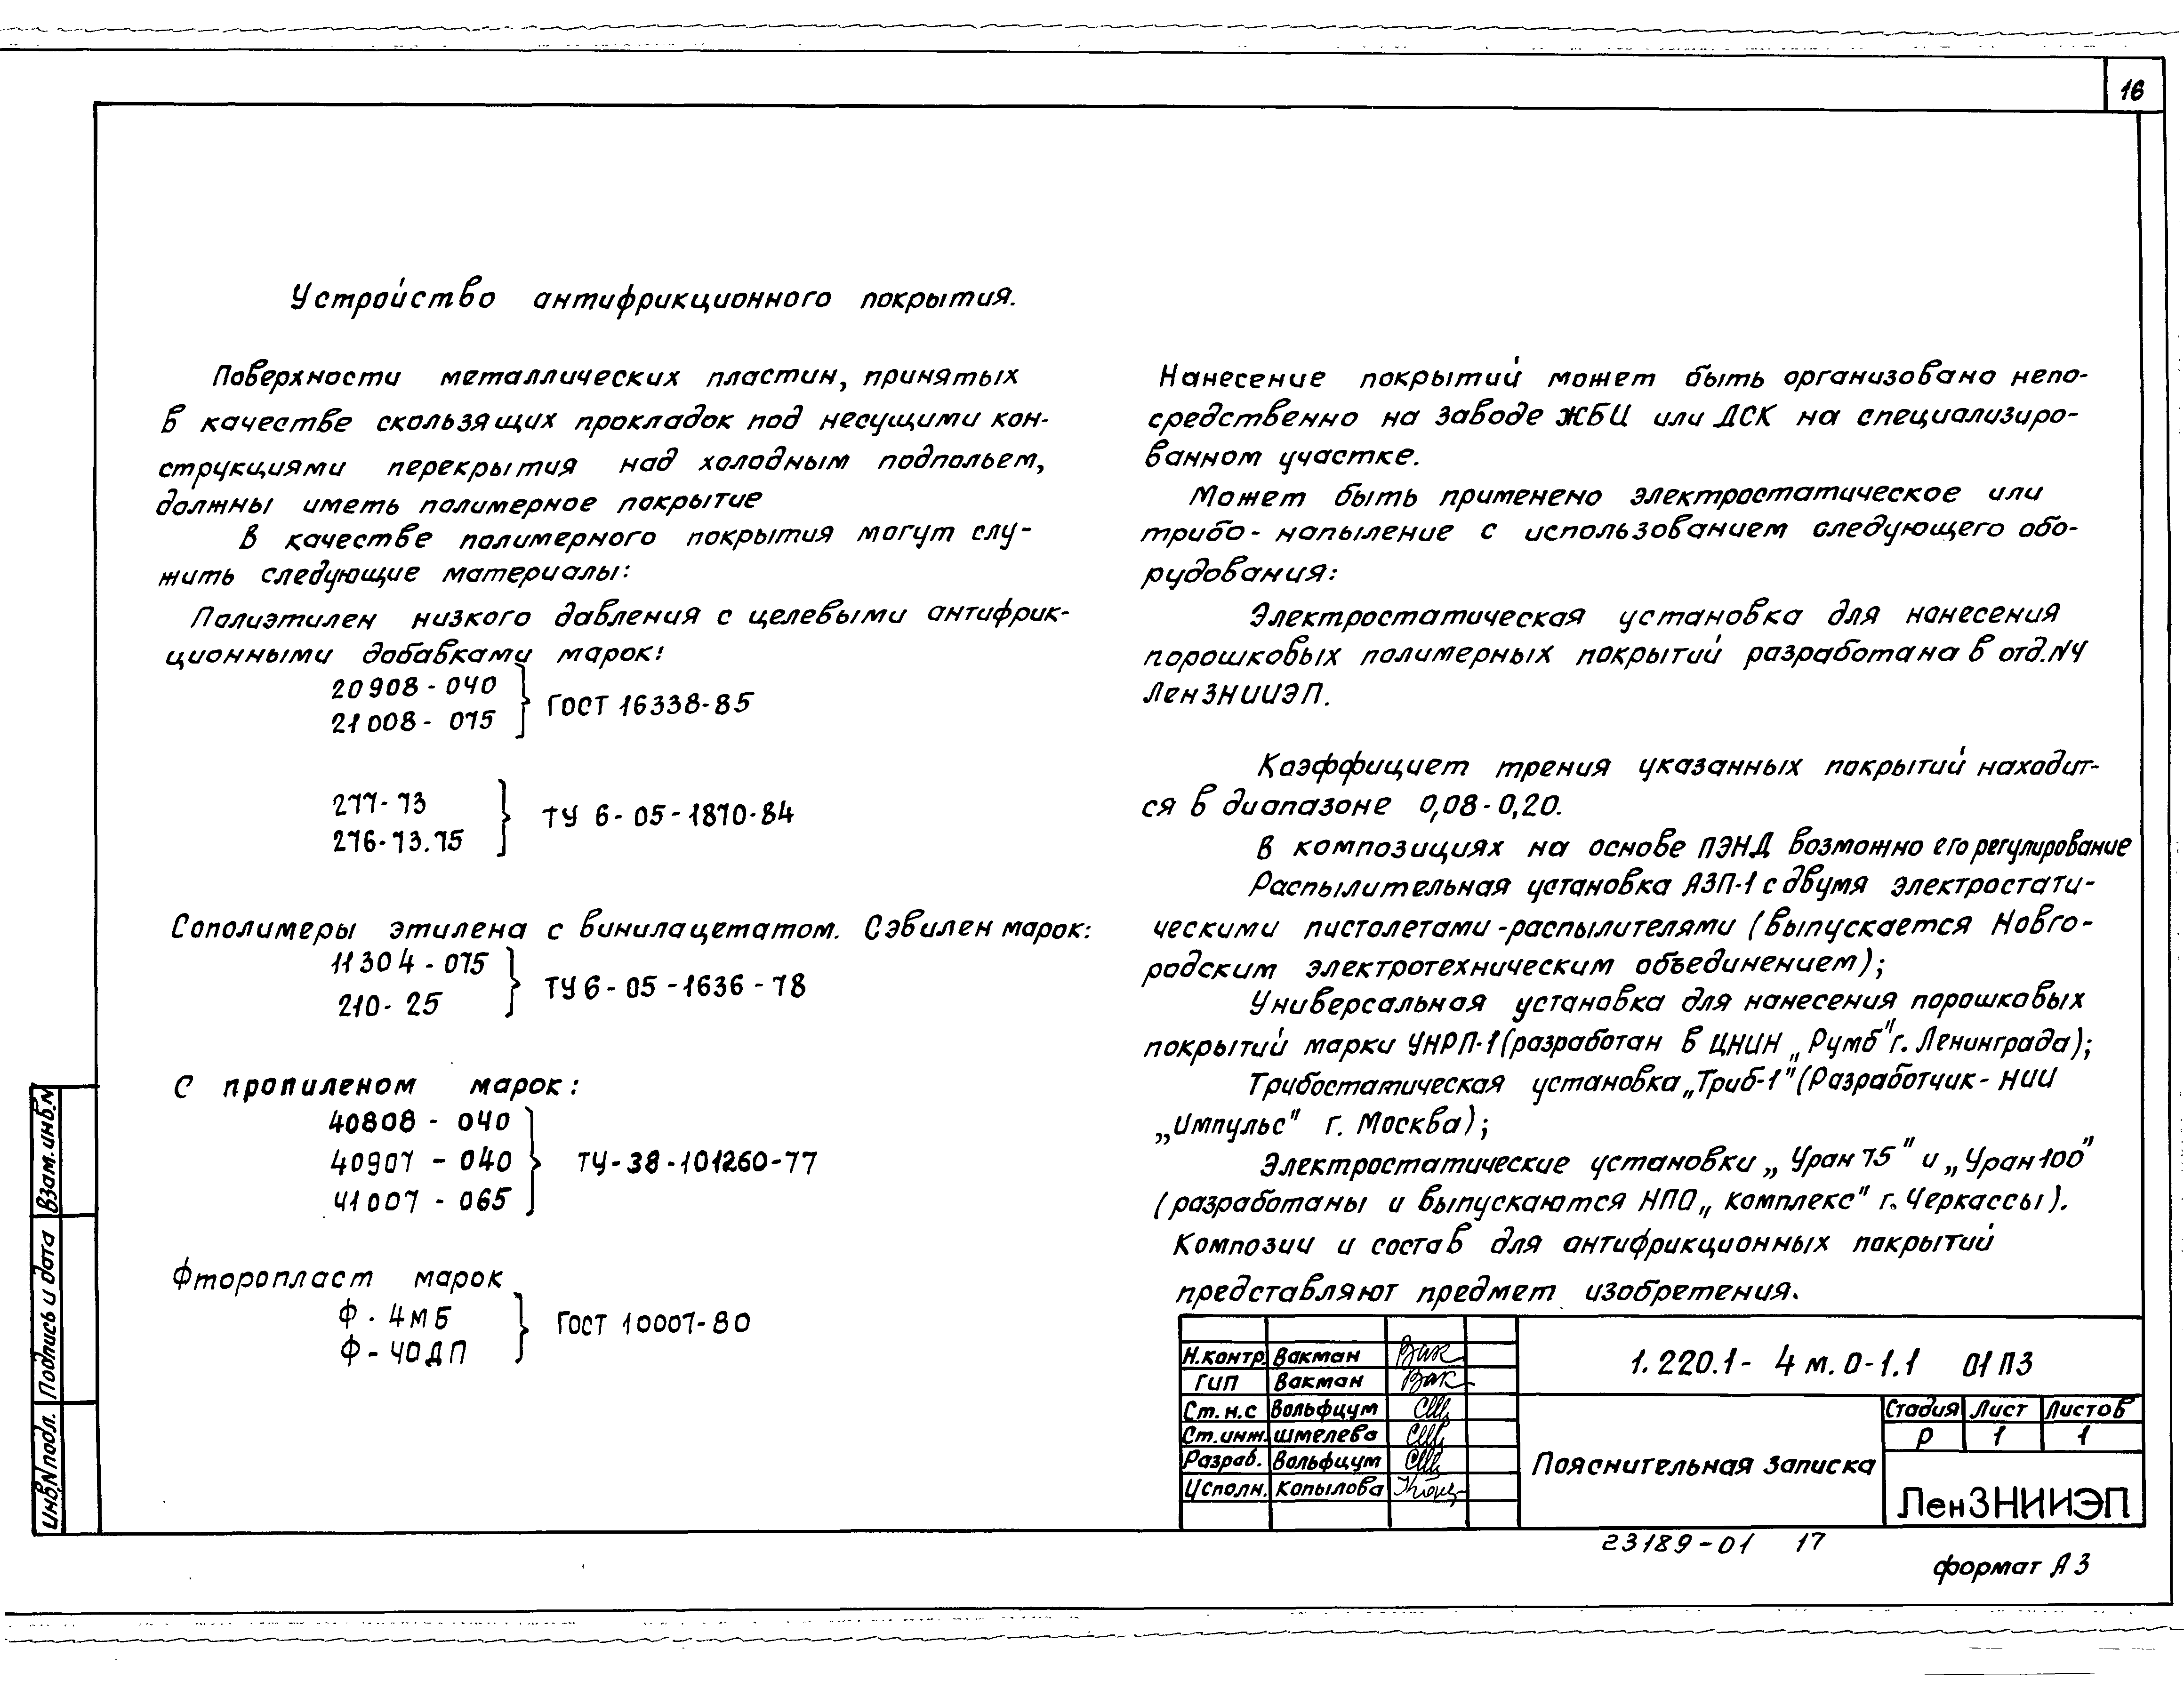 16
Устройство антифрикционного покрытия.
Поверхности металлических пластин, принятых
в качестве скользящих прокладок под несущими кон-
струкциями перекрытия над холодным подпольем,
должны иметь полимерное покрытие
В качестве полимерного покрытия могут слу-
жить следующие материалы:
Полиэтилен низкого давления с целевыми антифрик-
ционными добавками марок:
20908-040
21008-075
ГОСТ 16338-85
277-73
276-73.75
ТУ 6-05-1870-84
Сополимеры этилена с винилацетатом. Сэвилен марок:
11304-075
210-25
ТУ 6-05-1636-78
С пропиленом марок:
40808-040
40907-040
41007-065
ТУ-38-101260-77
Фторопласт марок
Ф-4МБ
Ф-40ДП
ГОСТ 10007-80
Нанесение покрытий может быть организовано непо-
средственно на заводе ЖБИ или ДСК на специализиро-
ванном участке.
Может быть применено электростатическое или
трибо-напыление с использованием следующего обо-
рудования:
Электростатическая установка для нанесения
порошковых полимерных покрытий разработана в отд.N4
ЛенЗНИИЭП.
Коэффициет трения указанных покрытий находит-
ся в диапазоне 0,08-0,20.
В композициях на основе ПЭНД возможно его регулирование
Распылительная установка АЗП-1 с двумя электростати-
ческими пистолетами-распылителями (выпускается Новго-
родским электротехническим объединением);
Универсальная установка для нанесения порошковых
покрытий марки УНРП-1 (разработан в ЦНИН „Румб" г. Ленинграда);
Трибостатическая установка „Триб-1" (Разработчик - НИИ
„Импульс" г. Москва);
Электростатические установки „Уран 75" и „Уран 100"
(разработаны и выпускаются НПО „комплекс" г. Черкассы).
Композии и состав для антифрикционных покрытий
представляют предмет изобретения.
Н.контр. Вакман Вак
ГИП Вакман Вак
Ст.н.с Вольфцум
Ст.инж. Шмелева
Разраб. Вольфцум
Исполн. Копылова
1.220.1-4 м.0-1.1 01 ПЗ
Пояснительная записка
Стадия Лист Листов
Р 1 1
ЛенЗНИИЭП
23189-01 17
формат А3
Взам.инв.N
Подпись и дата
Инв.N подл.